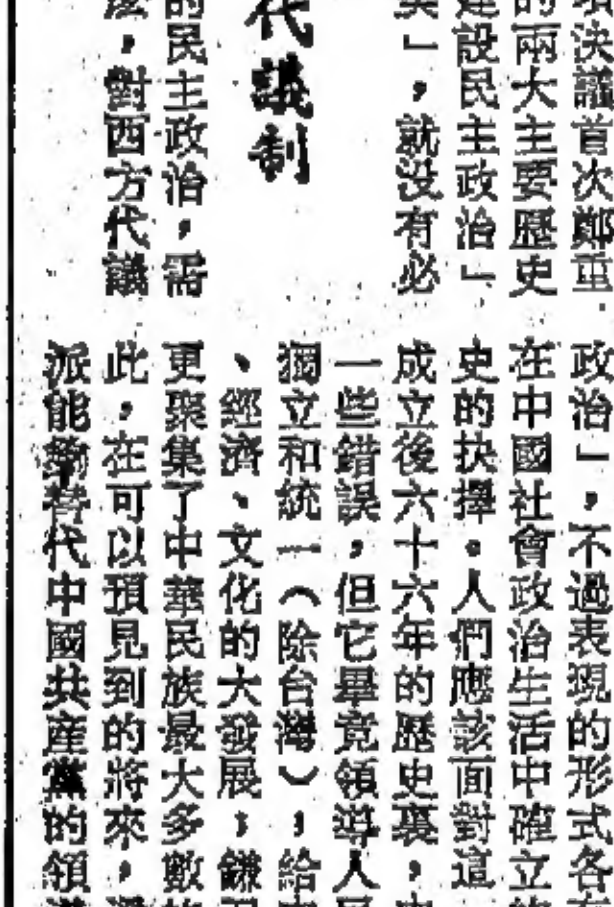 項決議首次鄭重
的兩大主要歷史
建設民主政治」
」,就没有必
代議制
的民主政治,需
,對西方代議
政治」,不過表現的形式各
在中國社會政治生活中確立
史的抉擇。人們應該面對這
成立後六十六年的歷史裏,
一些錯誤,但它畢竟領導人民
獨立和統一(除台灣),給
、經濟、文化的大發展;鎌
更聚集了中華民族最大多數
此,在可以預見到的將來,
派能夠替代中國共産黨的領